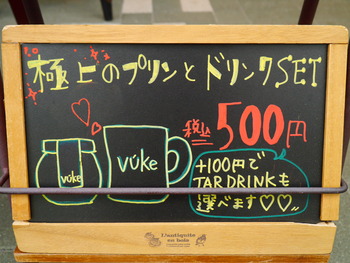 極上のプリンとドリンクSET
税込500円
vuke
vuke
+100円で
TAR DRINKも
選べます♡♡
L'antiquite
en bois